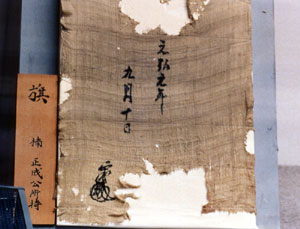 元弘元年
九月十日
旗
楠正成公所持